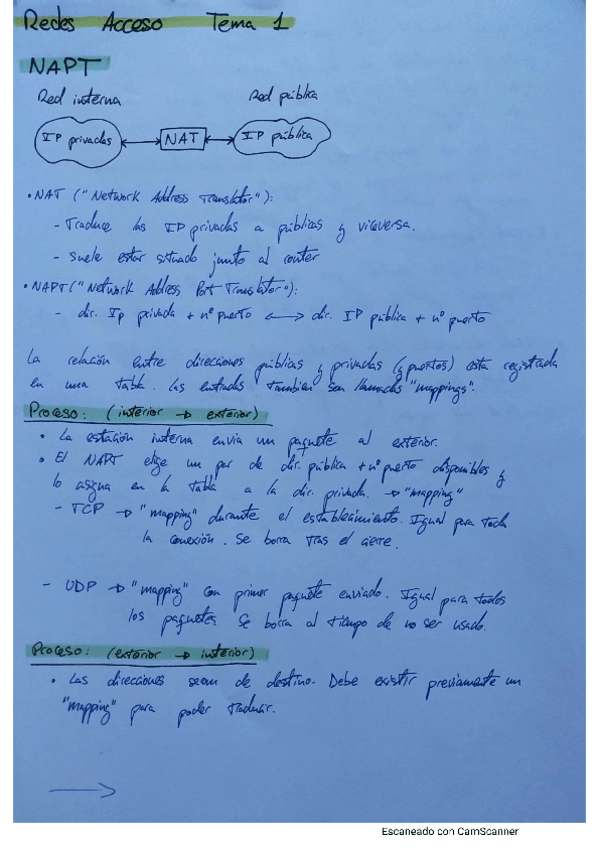 Redes Acceso Tema 1
NAPT
Red interna Red pública
IP privadas NAT IP pública
• NAT ("Network Address Translator"):
- Traduce las IP privadas a públicas y viceversa.
- Suele estar situado junto al router
• NAPT ("Network Address Port Translator"):
- dir. Ip privada + nº puerto ⟷ dir. IP pública + nº puerto
La relación entre direcciones públicas y privadas (y puertos) esta registrada
en una tabla. Las entradas también son llamadas "mappings".
Proceso: (interior → exterior)
• La estación interna envia un paquete al exterior.
• El NAPT elige un par de dir. pública + nº puerto disponibles y
lo asigna en la tabla a la dir. privada. → "mapping"
- TCP → "mapping" durante el establecimiento. Igual para toda
la conexión. Se borra tras el cierre.
- UDP → "mapping" con primer paquete enviado. Igual para todos
los paquetes. Se borra al tiempo de no ser usado.
Proceso: (exterior → interior)
• Las direcciones seran de destino. Debe existir previamente un
"mapping" para poder traducir.
→
Escaneado con CamScanner